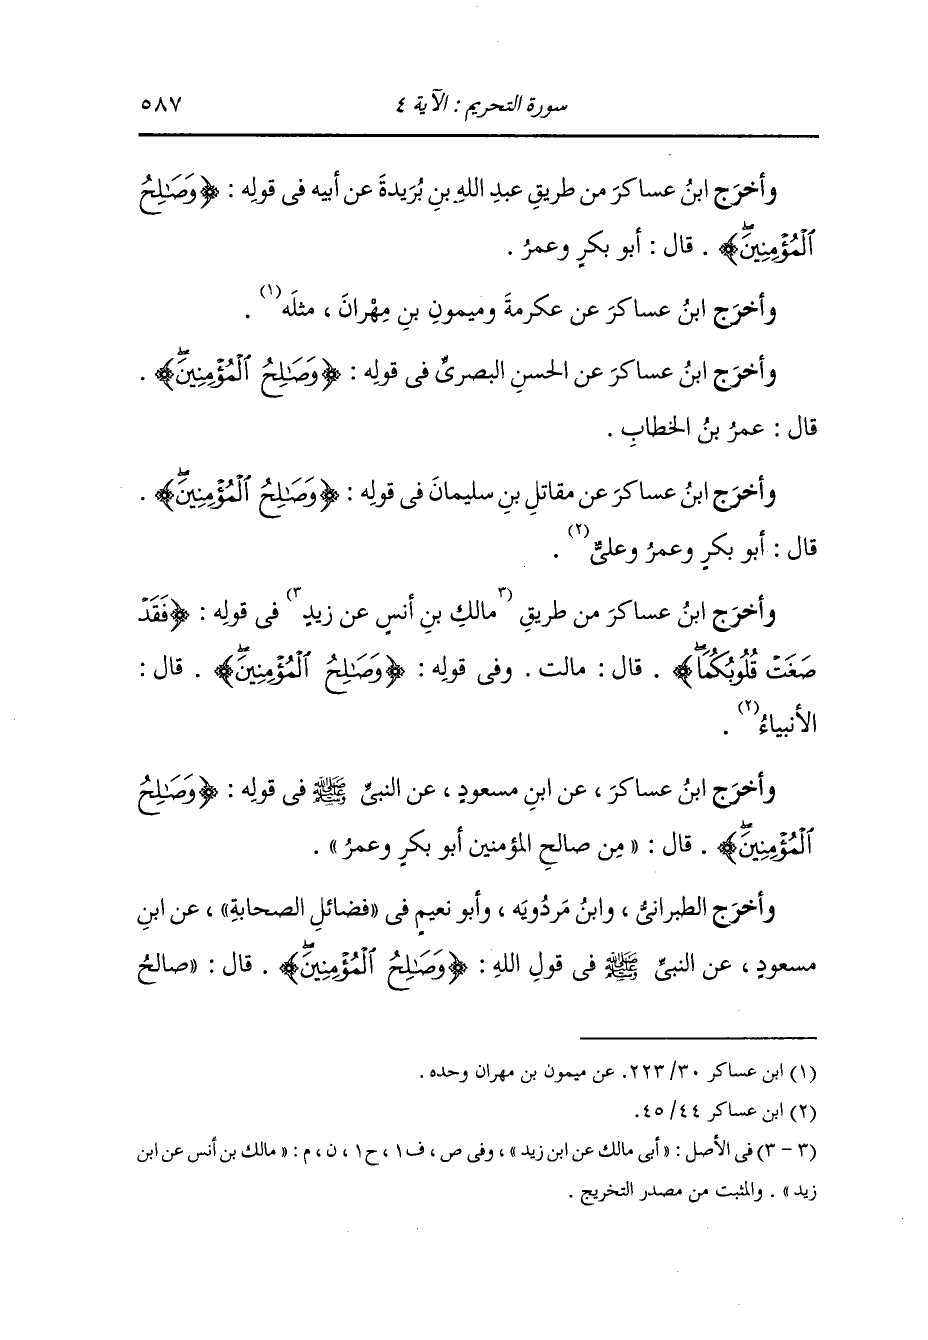 سورة التحريم : الآية ٤ ٥٨٧
وأخرَج ابنُ عساكرَ من طريقِ عبدِ اللهِ بنِ بُرَيدةَ عن أبيه فى قولِه : ﴿وَصَٰلِحُ
ٱلْمُؤْمِنِينَۖ﴾ . قال : أبو بكرٍ وعمرُ .
وأخرَج ابنُ عساكرَ عن عكرمةَ وميمونِ بنِ مِهْرانَ ، مثلَه(١) .
وأخرَج ابنُ عساكرَ عن الحسنِ البصرىِّ فى قولِه : ﴿وَصَٰلِحُ ٱلْمُؤْمِنِينَۖ﴾ .
قال : عمرُ بنُ الخطابِ .
وأخرَج ابنُ عساكرَ عن مقاتلِ بنِ سليمانَ فى قولِه : ﴿وَصَٰلِحُ ٱلْمُؤْمِنِينَۖ﴾ .
قال : أبو بكرٍ وعمرُ وعلىٌّ(٢) .
وأخرَج ابنُ عساكرَ من طريقِ (٣مالكِ بنِ أنسٍ عن زيدٍ٣) فى قولِه : ﴿فَقَدْ
صَغَتْ قُلُوبُكُمَاۖ﴾ . قال : مالت . وفى قولِه : ﴿وَصَٰلِحُ ٱلْمُؤْمِنِينَۖ﴾ . قال :
الأنبياءُ(٢) .
وأخرَج ابنُ عساكرَ ، عن ابنِ مسعودٍ ، عن النبىِّ ﷺ فى قولِه : ﴿وَصَٰلِحُ
ٱلْمُؤْمِنِينَۖ﴾ . قال : « مِن صالحِ المؤمنين أبو بكرٍ وعمرُ » .
وأخرَج الطبرانىُّ ، وابنُ مَردُويَه ، وأبو نعيمٍ فى «فضائلِ الصحابةِ» ، عن ابنِ
مسعودٍ ، عن النبىِّ ﷺ فى قولِ اللهِ : ﴿وَصَٰلِحُ ٱلْمُؤْمِنِينَۖ﴾ . قال : «صالحُ
(١) ابن عساكر ٣٠/ ٢٢٣. عن ميمون بن مهران وحده .
(٢) ابن عساكر ٤٤/ ٤٥.
(٣ – ٣) فى الأصل : « أبى مالك عن ابن زيد » ، وفى ص ، ف١ ، ح١ ، ن ، م : « مالك بن أنس عن ابن
زيد » . والمثبت من مصدر التخريج .